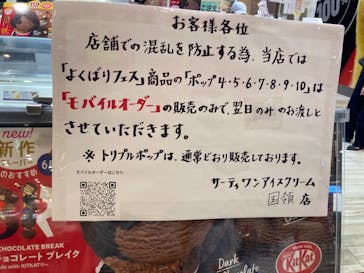 お客様各位
店舗での混乱を防止する為、当店では
「よくばりフェス」商品の「ポップ4・5・6・7・8・9・10」は
「モバイルオーダー」の販売のみで、翌日のみのお渡しと
させていただきます。
※トリプルポップは、通常どおり販売しております。
モバイルオーダーはこちら
サーティワンアイスクリーム
国領店
new!
新作
CHOCOLATE BREAK
チョコレート ブレイク
Made with KITKAT®
Dark
Chocolate
KitKat